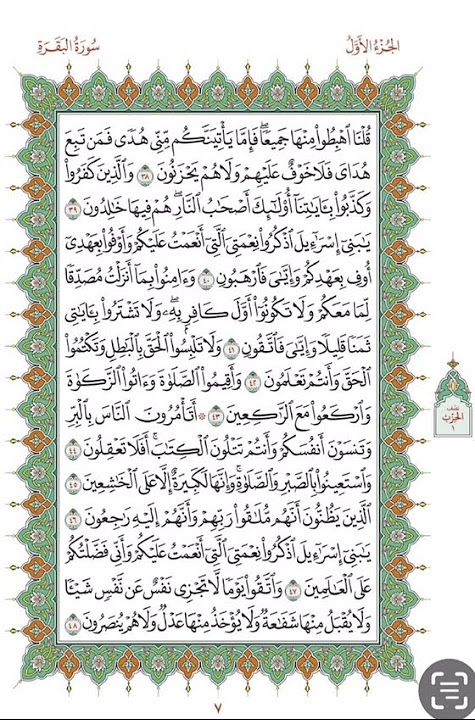 الجُزْءُ الأَوَّلُ
سُورَةُ البَقَرَةِ
قُلْنَا ٱهْبِطُوا۟ مِنْهَا جَمِيعًۭا ۖ فَإِمَّا يَأْتِيَنَّكُم مِّنِّى هُدًۭى فَمَن تَبِعَ
هُدَاىَ فَلَا خَوْفٌ عَلَيْهِمْ وَلَا هُمْ يَحْزَنُونَ ٣٨ وَٱلَّذِينَ كَفَرُوا۟
وَكَذَّبُوا۟ بِـَٔايَـٰتِنَآ أُو۟لَـٰٓئِكَ أَصْحَـٰبُ ٱلنَّارِ ۖ هُمْ فِيهَا خَـٰلِدُونَ ٣٩
يَـٰبَنِىٓ إِسْرَٰٓءِيلَ ٱذْكُرُوا۟ نِعْمَتِىَ ٱلَّتِىٓ أَنْعَمْتُ عَلَيْكُمْ وَأَوْفُوا۟ بِعَهْدِىٓ
أُوفِ بِعَهْدِكُمْ وَإِيَّـٰىَ فَٱرْهَبُونِ ٤٠ وَءَامِنُوا۟ بِمَآ أَنزَلْتُ مُصَدِّقًۭا
لِّمَا مَعَكُمْ وَلَا تَكُونُوٓا۟ أَوَّلَ كَافِرٍۭ بِهِۦ ۖ وَلَا تَشْتَرُوا۟ بِـَٔايَـٰتِى
ثَمَنًۭا قَلِيلًۭا وَإِيَّـٰىَ فَٱتَّقُونِ ٤١ وَلَا تَلْبِسُوا۟ ٱلْحَقَّ بِٱلْبَـٰطِلِ وَتَكْتُمُوا۟
ٱلْحَقَّ وَأَنتُمْ تَعْلَمُونَ ٤٢ وَأَقِيمُوا۟ ٱلصَّلَوٰةَ وَءَاتُوا۟ ٱلزَّكَوٰةَ
وَٱرْكَعُوا۟ مَعَ ٱلرَّٰكِعِينَ ٤٣ ۞ أَتَأْمُرُونَ ٱلنَّاسَ بِٱلْبِرِّ
وَتَنسَوْنَ أَنفُسَكُمْ وَأَنتُمْ تَتْلُونَ ٱلْكِتَـٰبَ ۚ أَفَلَا تَعْقِلُونَ ٤٤
وَٱسْتَعِينُوا۟ بِٱلصَّبْرِ وَٱلصَّلَوٰةِ ۚ وَإِنَّهَا لَكَبِيرَةٌ إِلَّا عَلَى ٱلْخَـٰشِعِينَ ٤٥
ٱلَّذِينَ يَظُنُّونَ أَنَّهُم مُّلَـٰقُوا۟ رَبِّهِمْ وَأَنَّهُمْ إِلَيْهِ رَٰجِعُونَ ٤٦
يَـٰبَنِىٓ إِسْرَٰٓءِيلَ ٱذْكُرُوا۟ نِعْمَتِىَ ٱلَّتِىٓ أَنْعَمْتُ عَلَيْكُمْ وَأَنِّى فَضَّلْتُكُمْ
عَلَى ٱلْعَـٰلَمِينَ ٤٧ وَٱتَّقُوا۟ يَوْمًۭا لَّا تَجْزِى نَفْسٌ عَن نَّفْسٍۢ شَيْـًۭٔا
وَلَا يُقْبَلُ مِنْهَا شَفَـٰعَةٌۭ وَلَا يُؤْخَذُ مِنْهَا عَدْلٌۭ وَلَا هُمْ يُنصَرُونَ ٤٨
نِصْفُ
الحِزْبِ
١
٧